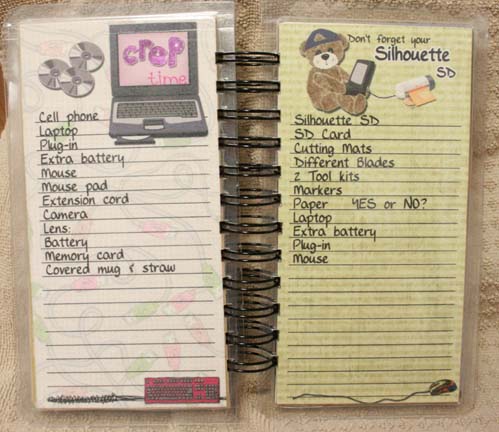 crop
time
Cell phone
Laptop
Plug-in
Extra battery
Mouse
Mouse pad
Extension cord
Camera
Lens:
Battery
Memory card
Covered mug & straw
Don't forget your
Silhouette
SD
Silhouette SD
SD Card
Cutting Mats
Different Blades
2 Tool kits
Markers
Paper YES or NO?
Laptop
Extra battery
Plug-in
Mouse